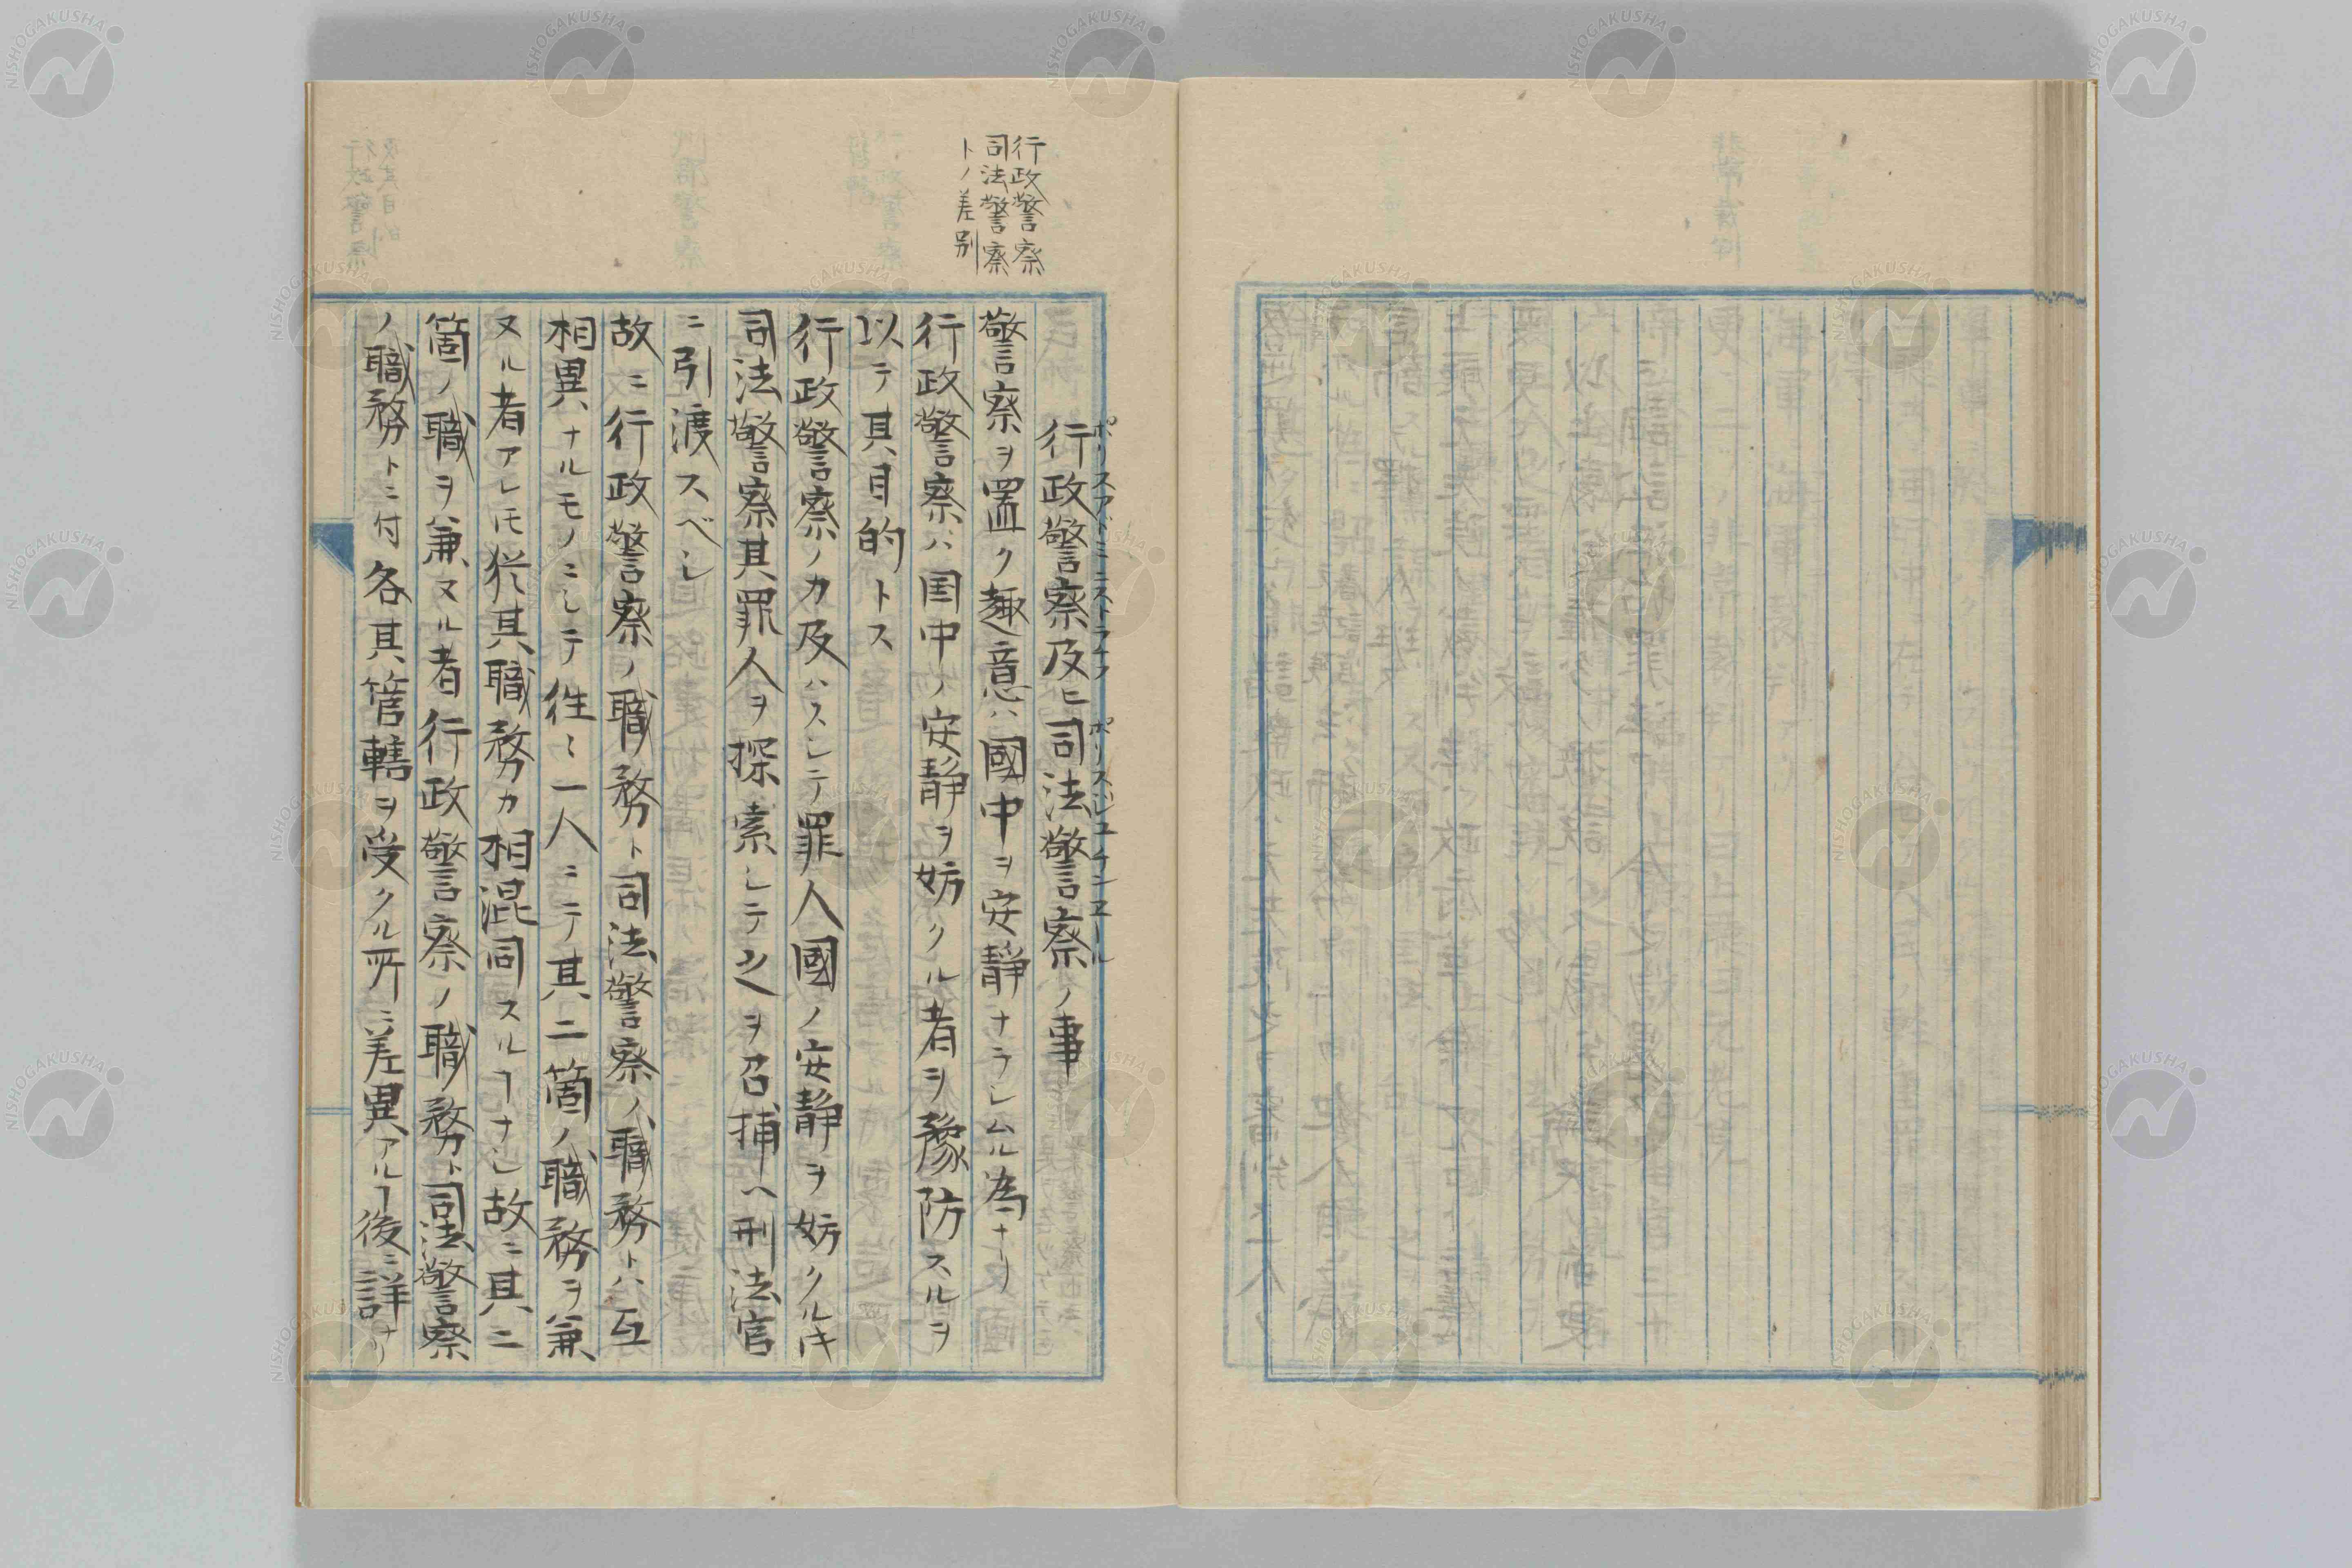 行政警察
司法警察
トノ差別
行政警察及ヒ司法警察ノ事
ポリスアドミニストラチフ ポリスジュヂシエール
警察ヲ置ク趣意ハ國中ヲ安靜ナラシムル為ナリ
行政警察ハ国中ノ安静ヲ妨クル者ヲ豫防スルヲ
以テ其目的トス
行政警察ノ力及ハスシテ罪人國ノ安静ヲ妨クル𪜈
司法警察其罪人ヲ探索シテ之ヲ召捕ヘ刑法官
ニ引渡スベシ
故ニ行政警察ノ職務ト司法警察ノ職務トハ互
相異ナルモノニシテ徃〻一人ニテ其二箇ノ職務ヲ兼
ヌル者アレ𪜈猶其職務カ相混同スルヿナシ故ニ其二
箇ノ職ヲ兼ヌル者行政警察ノ職務ト司法警察
ノ職務トニ付各其管轄ヲ受クル所ニ差異アルヿ後ニ詳ナリ
NISHOGAKUSHA